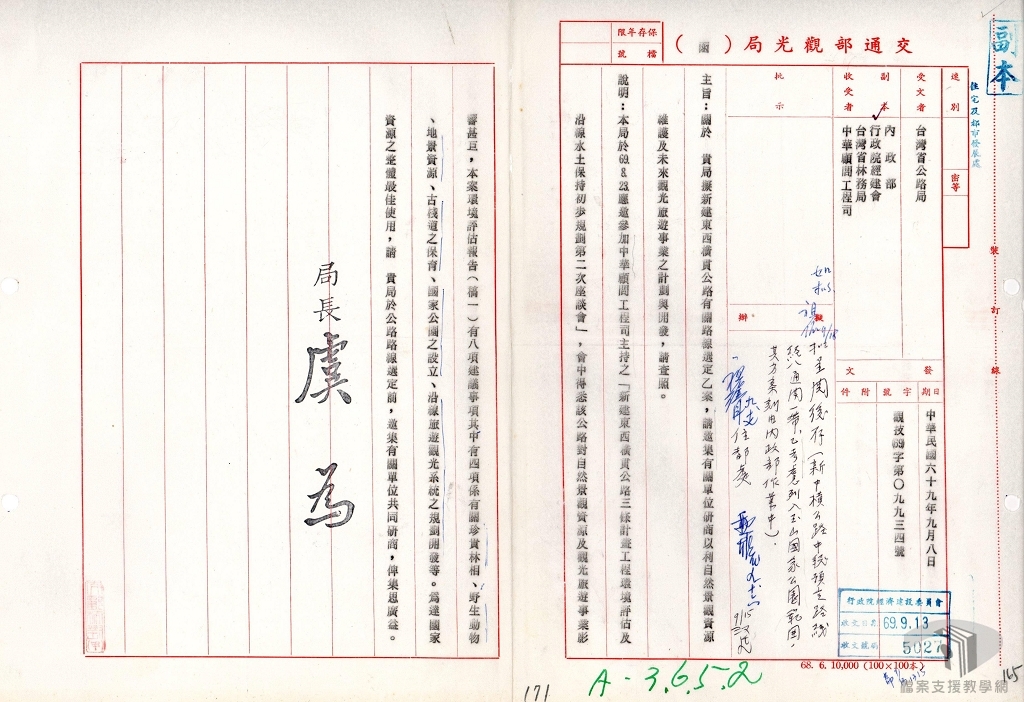 副本
住宅及都市發展處
保存年限
檔號
交通部觀光局（函）
速別
密等
受文者
台灣省公路局
副本收受者
內政部
行政院經建會
台灣省林務局
中華顧問工程司
批示
擬辦
發文
日期
字號
附件
中華民國六十九年九月八日
觀技69字第〇九九三四號
主旨：關於　貴局擬新建東西橫貫公路有關路線選定乙案，請邀集有關單位研商以利自然景觀資源
維護及未來觀光旅遊事業之計劃與開發，請查照。
說明：本局於69.8.23.應邀參加中華顧問工程司主持之「新建東西橫貫公路三條計畫工程環境評估及
沿線水土保持初步規劃第二次座談會」，會中得悉該公路對自然景觀資源及觀光旅遊事業影
響甚巨，本案環境評估報告（稿一）有八項建議事項其中有四項係有關珍貴林相、野生動物
、地景資源、古棧道之保育、國家公園之設立、沿線旅遊觀光系統之規劃開發等。為達國家
資源之整體最佳使用，請　貴局於公路路線選定前，邀集有關單位共同研商，俾集思廣益。
局長虞為
如擬
擬呈閱後存（新中橫公路中線預定路線
經八通關一帶，已考慮列入玉山國家公園範圍，
其方案刻由內政部作業中）。
住都處
9/15
行政院經濟建設委員會
收文日期 69.9.13
收文號碼 5027
號
訂
線
68. 6. 10,000 (100×100本)
A-3.6.5.2
171
165
檔案支援教學網